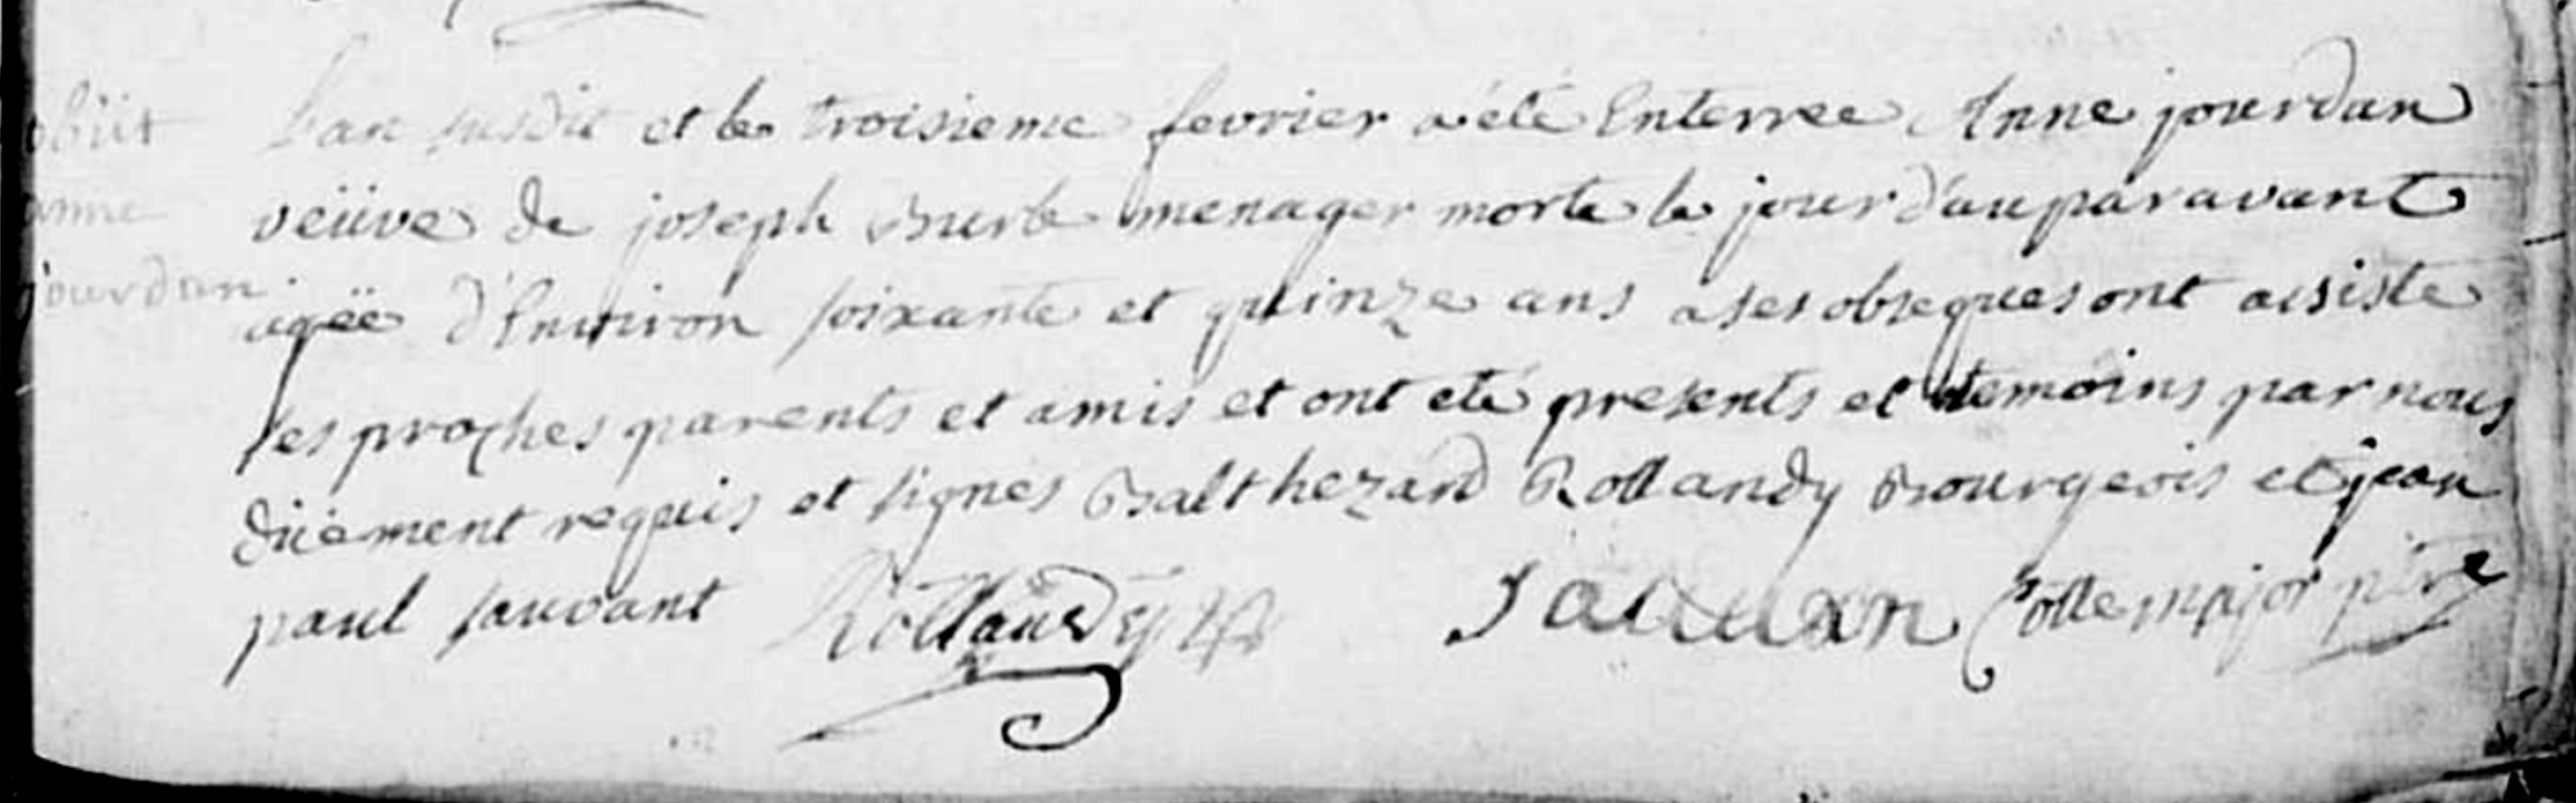 obiit
anne
jourdan
L'an susdit et le troisieme fevrier a été Enterree Anne jourdan
veüve de joseph Burle menager morte le jour d'auparavant
agëe d'Environ soixante et quinze ans a ses obseques ont assisté
ses proches parents et amis et ont eté presents et temoins par nous
düement requis et signes Balthezard Rollandy Bourgeois et jean
paul sauvant Rollandÿ Sauvan Colle major ptre